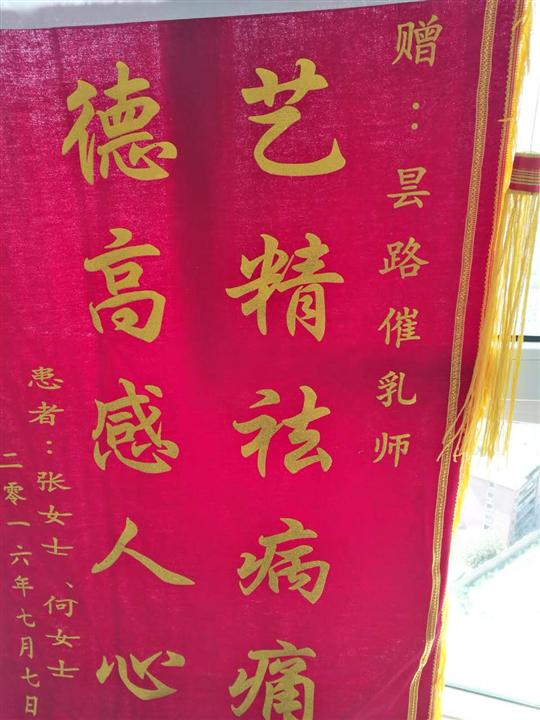 赠：昙路催乳师
艺精祛病痛
德高感人心
患者：张女士、何女士
二零一六年七月七日